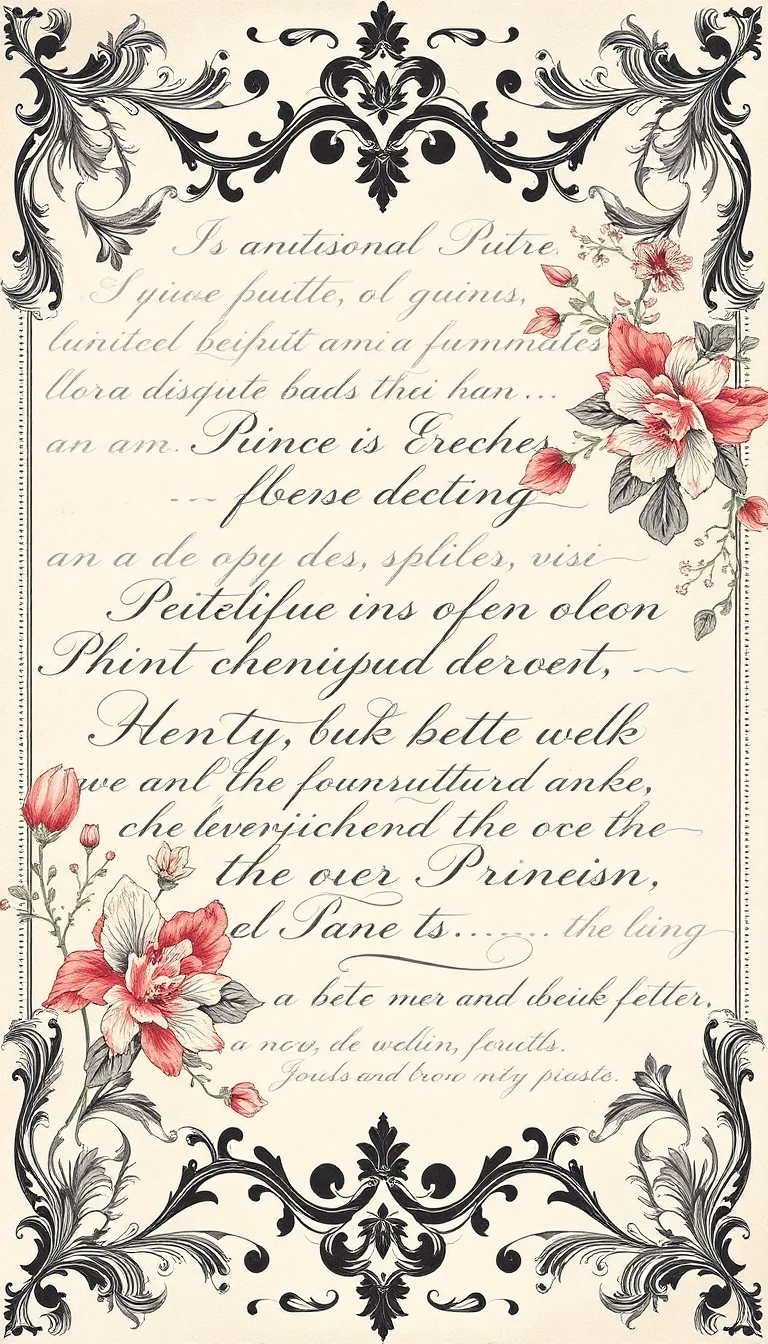 Is anitisonal Putre.
S yiwe puitte, ol guinis,
lunitcel beifutt ami a fummates
llora disqute bads thei han...
an am. Puince is Ereches
--- fberse decting
an a de opy des, spliles, visi
Peitelifue ins ofen oleon
Phint cheniypud deroent,
Henty, buk bette welk
we anl the founsutturd anke,
che leverjichend the oce the
the over Prineisn,
el Pane ts....... the liing
a bete mer and dbeiik fetter,
a nov, de wellin, fouttls.
Jouls and brow nty piaste.